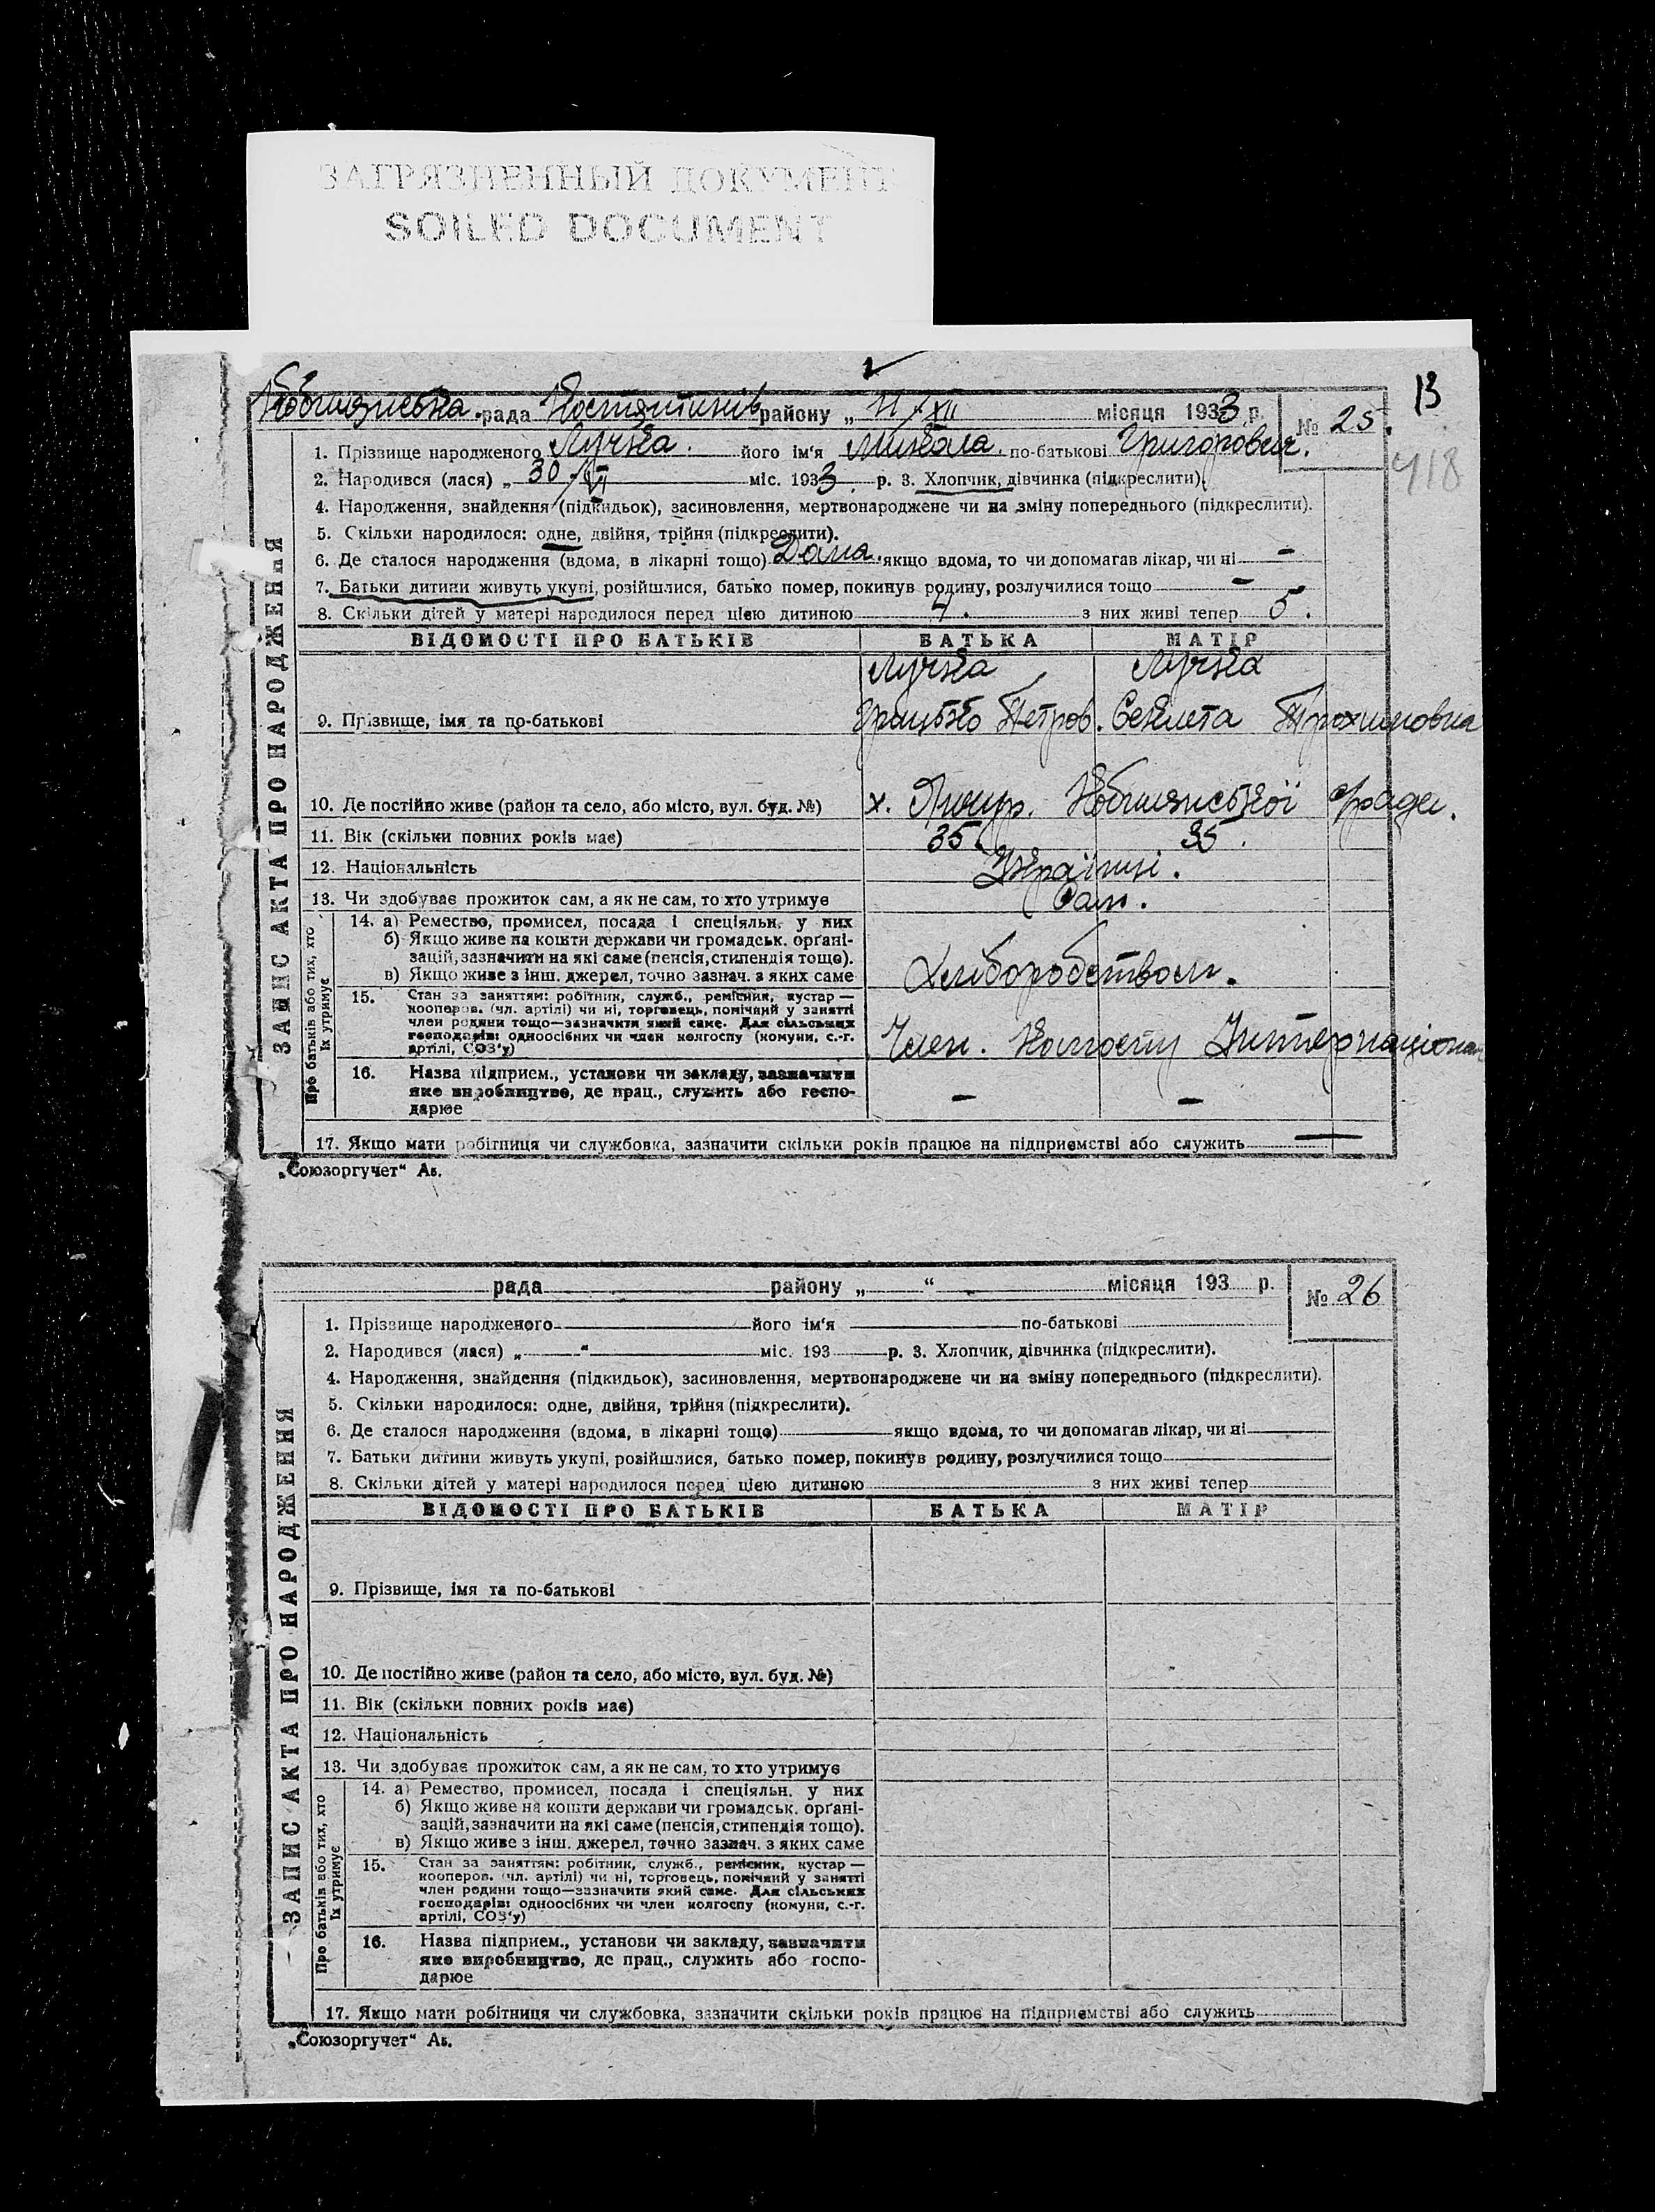 ЗАГРЯЗНЕННЫЙ ДОКУМЕНТ
SOILED DOCUMENT
13
рада района „ 11/XII місяця 1933 р. № 25.
418
1. Прізвище народженого Лучка. його ім'я Микола. по-батькові Григорович.
2. Народився (лася) „ 30/VI міс. 1933. р. 3. Хлопчик, дівчинка (підкреслити).
4. Народження, знайдення (підкидьок), засиновлення, мертвонароджене чи на зміну попереднього (підкреслити).
5. Скільки народилося: одне, двійня, трійня (підкреслити).
6. Де сталося народження (вдома, в лікарні тощо) Дома. якщо вдома, то чи допомагав лікар, чи ні —
7. Батьки дитини живуть укупі, розійшлися, батько помер, покинув родину, розлучилися тощо —
8. Скільки дітей у матері народилося перед цією дитиною 7. з них живі тепер 5.
ВІДОМОСТІ ПРО БАТЬКІВ БАТЬКА МАТІР
Лучка Лучка
9. Прізвище, імя та по-батькові Грицько Петров. Секлета Трохимовна
10. Де постійно живе (район та село, або місто, вул. буд. №) х. ради.
11. Вік (скільки повних років має) 35. 35.
12. Національність Українці.
13. Чи здобуває прожиток сам, а як не сам, то хто утримує Сам.
14. а) Ремество, промисел, посада і спеціяльн. у них
б) Якщо живе на кошти держави чи громадськ. органі-
зацій, зазначити на які саме (пенсія, стипендія тощо).
в) Якщо живе з інш. джерел, точно зазнач. з яких саме
Хліборобством.
15. Стан за заняттям: робітник, служб., ремісник, кустар —
кооперов. (чл. артілі) чи ні, торговець, помічний у занятті
член родини тощо—зазначити який саме. Для сільських
господарів: одноосібних чи член колгоспу (комуни, с.-г.
артілі, СОЗ'у)
Член. Колгоспу Интернаціонал
16. Назва підприєм., установи чи закладу, зазначити
яке виробництво, де прац., служить або госпо-
дарює — —
17. Якщо мати робітниця чи службовка, зазначити скільки років працює на підприємстві або служить —
ЗАПИС АКТА ПРО НАРОДЖЕННЯ
Про батьків або тих, хто
їх утримує
„Союзоргучет“ Ак.
рада району „ “ місяця 193 р. № 26
1. Прізвище народженого його ім'я по-батькові
2. Народився (лася) „ “ міс. 193 р. 3. Хлопчик, дівчинка (підкреслити).
4. Народження, знайдення (підкидьок), засиновлення, мертвонароджене чи на зміну попереднього (підкреслити).
5. Скільки народилося: одне, двійня, трійня (підкреслити).
6. Де сталося народження (вдома, в лікарні тощо) якщо вдома, то чи допомагав лікар, чи ні
7. Батьки дитини живуть укупі, розійшлися, батько помер, покинув родину, розлучилися тощо
8. Скільки дітей у матері народилося перед цією дитиною з них живі тепер
ВІДОМОСТІ ПРО БАТЬКІВ БАТЬКА МАТІР
9. Прізвище, імя та по-батькові
10. Де постійно живе (район та село, або місто, вул. буд. №)
11. Вік (скільки повних років має)
12. Національність
13. Чи здобуває прожиток сам, а як не сам, то хто утримує
14. а) Ремество, промисел, посада і спеціяльн. у них
б) Якщо живе на кошти держави чи громадськ. органі-
зацій, зазначити на які саме (пенсія, стипендія тощо).
в) Якщо живе з інш. джерел, точно зазнач. з яких саме
15. Стан за заняттям: робітник, служб., ремісник, кустар —
кооперов. (чл. артілі) чи ні, торговець, помічний у занятті
член родини тощо—зазначити який саме. Для сільських
господарів: одноосібних чи член колгоспу (комуни, с.-г.
артілі, СОЗ'у)
16. Назва підприєм., установи чи закладу, зазначити
яке виробництво, де прац., служить або госпо-
дарює
17. Якщо мати робітниця чи службовка, зазначити скільки років працює на підприємстві або служить
ЗАПИС АКТА ПРО НАРОДЖЕННЯ
Про батьків або тих, хто
їх утримує
„Союзоргучет“ Ак.